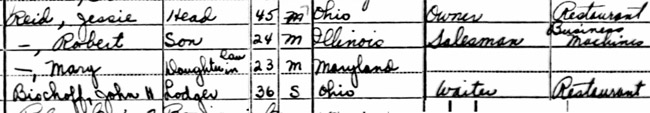 Reid, Jessie Head 45 M Ohio Owner Restaurant
—, Robert Son 24 M Illinois Salesman Business Machines
—, Mary Daughter in law 23 M Maryland
Bischoff, John H Lodger 36 S Ohio Waiter Restaurant